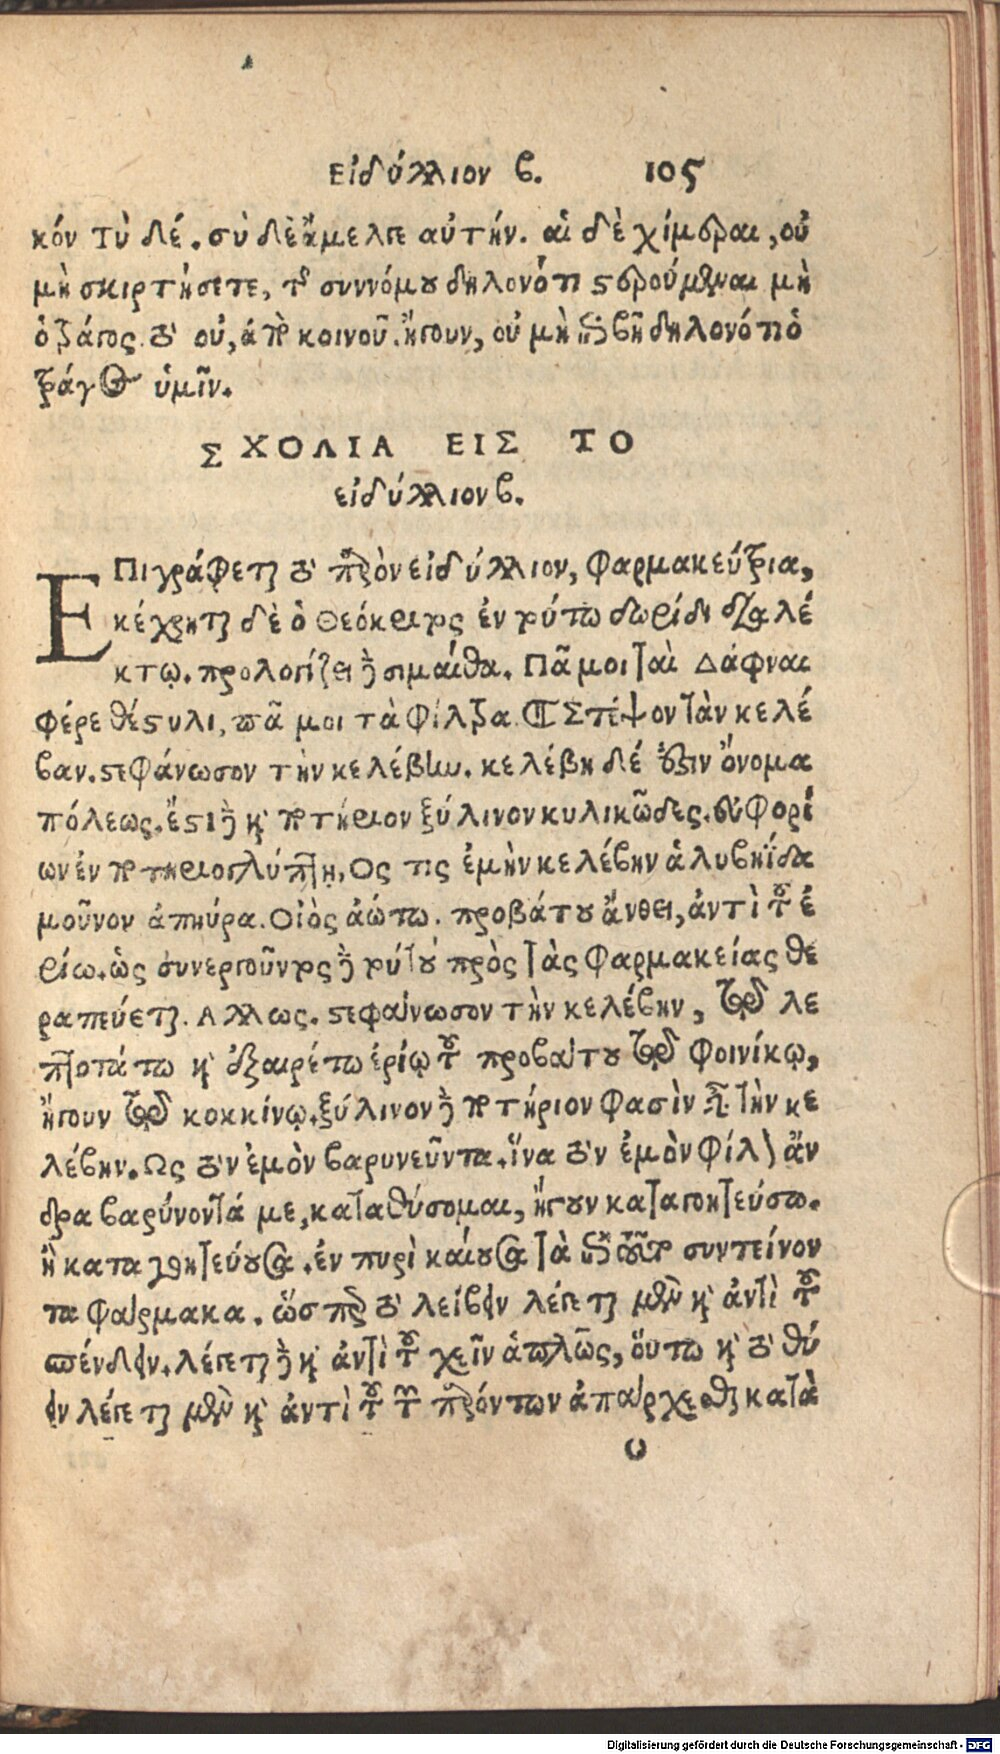 Εἰδύλλιον β. 105
κόν τὺ δέ. σὺ δὲ ἄμελγε αὐτήν. αἱ δὲ χίμαιραι, οὐ
μὴ σκιρτήσετε, τοῦ συννόμου δηλονότι στερούμεναι μὴ
ὁ τράγος. τὸ οὐ, ἀπὸ κοινοῦ. ἤγουν, οὐ μὴ ἐπιβῇ δηλονότι ὁ
τράγος ὑμῖν.
ΣΧΟΛΙΑ ΕΙΣ ΤΟ
εἰδύλλιον β.
ΕΠιγράφεται τὸ παρὸν εἰδύλλιον, Φαρμακεύτρια,
κέχρηται δὲ ὁ Θεόκριτος ἐν τούτῳ δωρίδι διαλέ
κτῳ. προλογίζει γὰρ σιμαίθα. Πᾶ μοι ταὶ Δάφναι
φέρε θέστυλι, πᾶ μοι τὰ φίλτρα. ¶ Στέψον τὰν κελέ
βαν. στεφάνωσον τὴν κελέβην. κελέβη δέ ἐστιν ὄνομα
πόλεως. ἔστι γὰρ καὶ ποτήριον ξύλινον κυλικῶδες. εὐφορί
ων ἐν ποτηριοκλέπτῃ, Ος τις ἐμὴν κελέβην ἀλυβηΐδα
μοῦνον ἀπηύρα. Οἰὸς ἀώτω. προβάτου ἄνθει, ἀντὶ τοῦ ἐ
ρίῳ. ὡς συνεργοῦντος γὰρ τούτου πρὸς τὰς φαρμακείας θε
ραπεύεται. Αλλως. στεφάνωσον τὴν κελέβην, τῷ λε
πτοτάτω καὶ ἐξαιρέτω ἐρίῳ τοῦ προβάτου τῷ φοινίκῳ,
ἤγουν τῷ κοκκίνῳ. ξύλινον γὰρ ποτήριον φασὶν εἶναι τὴν κε
λέβην. Ως τὸν ἐμὸν βαρυνεῦντα. ἵνα τὸν ἐμὸν φίλον ἄν
δρα βαρύνοντά με, καταθύσομαι, ἤγουν καταγοητεύσω.
ἢ καταγοητεύουσα. ἐν πυρὶ καίουσα τὰ ἐπὶ τοῦτο συντείνον
τα φάρμακα. ὥσπερ τὸ λείβειν λέγεται μὲν καὶ ἀντὶ τοῦ
σπένδειν. λέγεται γὰρ καὶ ἀντὶ τοῦ χεῖν ἁπλῶς, οὕτω καὶ τὸ θύ
ειν λέγεται μὲν καὶ ἀντὶ τοῦ τῶν παρόντων ἀπάρχεσθαι κατὰ
ο
Digitalisierung gefördert durch die Deutsche Forschungsgemeinschaft - DFG